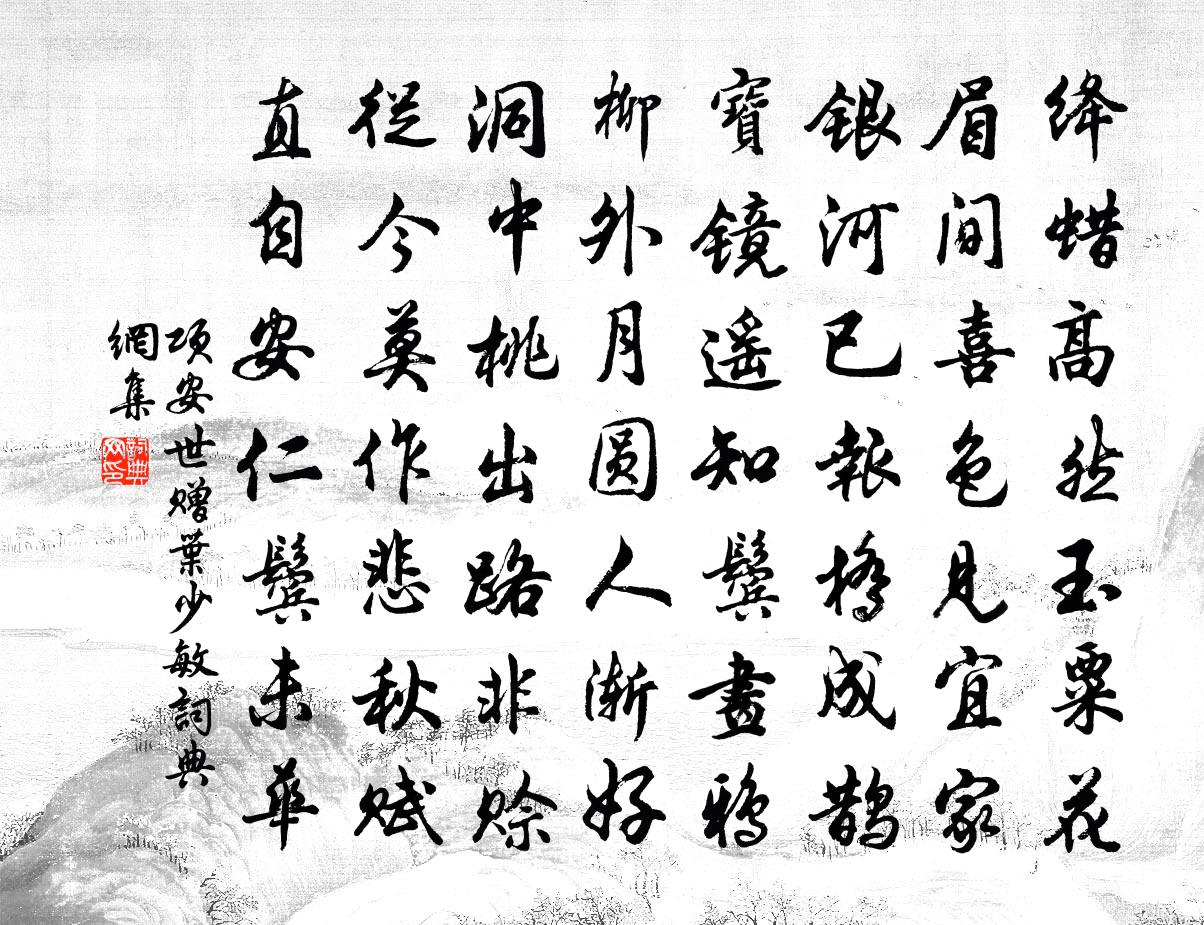 绛蜡高然玉粟花
眉间喜色見宜家
银河已報橋成鹊
寶镜遥知鬓畫鸦
柳外月圆人渐好
洞中桃出路非赊
從今莫作悲秋赋
直自安仁鬓未華
项安世赠葉少敏詞典
網集
詞典网印